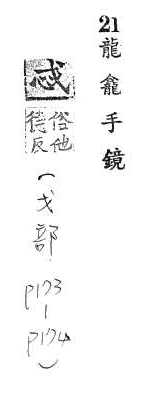 21 龍龕手鏡
俗他
德反
(戈部 p173-p174)